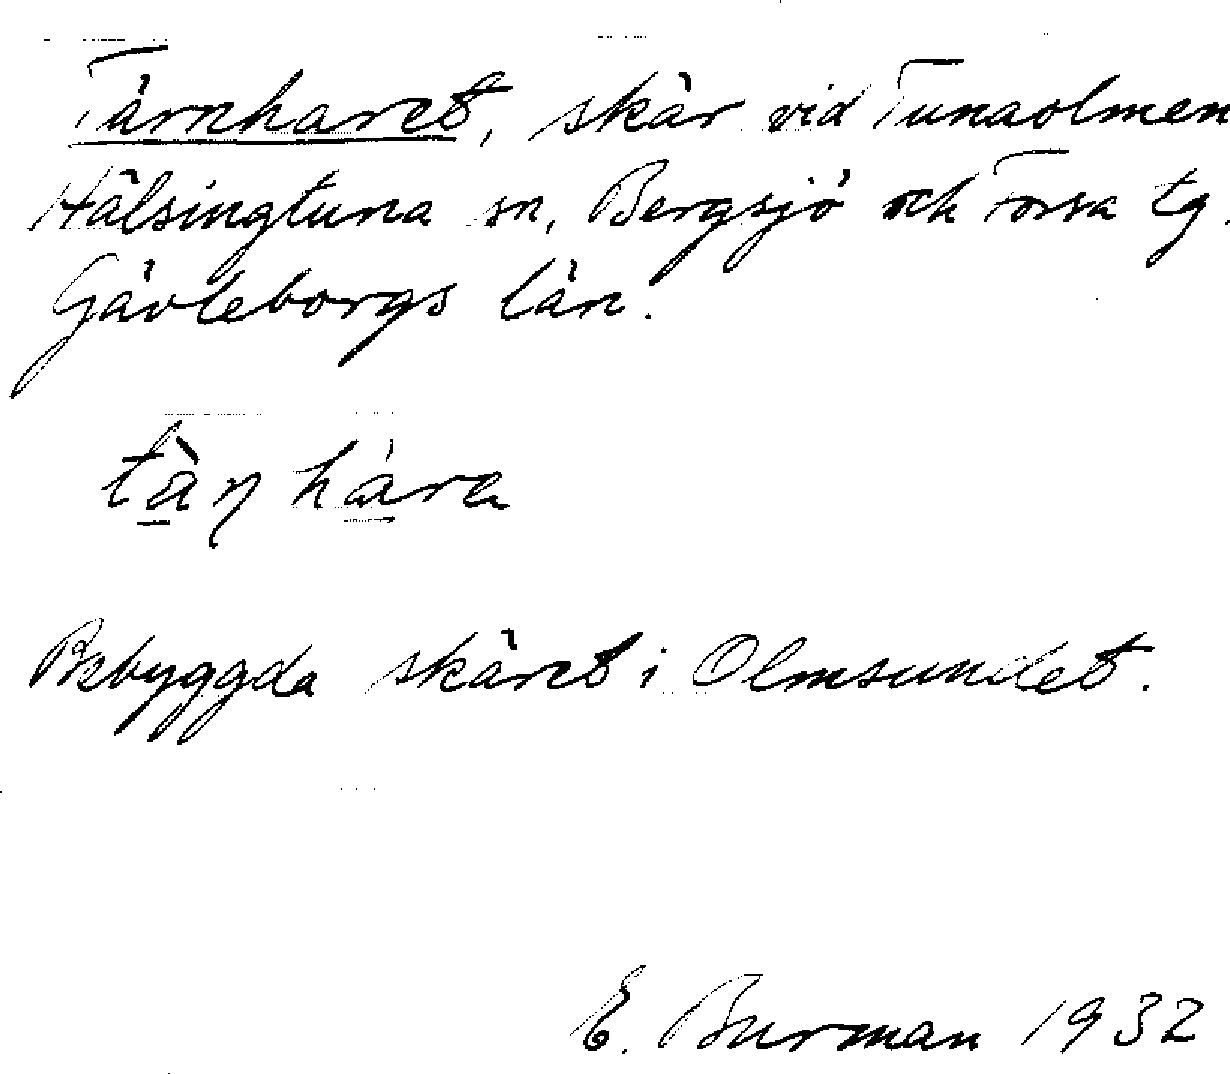 Tärnharet, skär vid Tunaolmen
Hälsingtuna sn, Bergsjö och Forsa tg.
Gävleborgs län.
tàn hára
Bebyggda skäret i Olmsundet.
E. Burman 1932